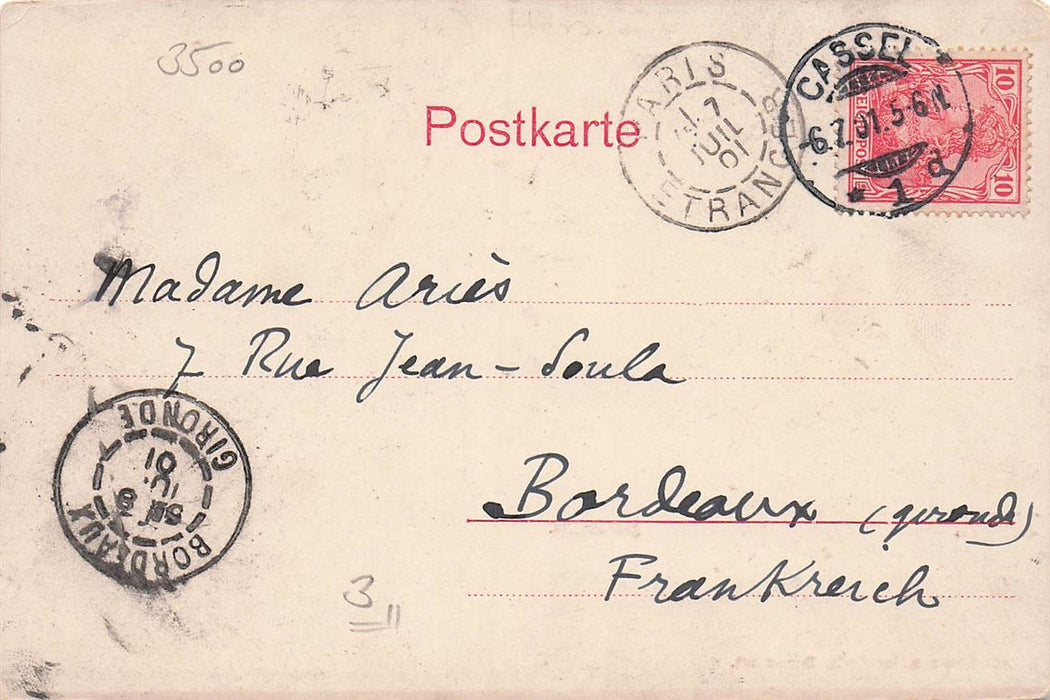 3500
Postkarte
PARIS
7
JUIL
01
ETRANGER
CASSEL
-6.7.01.5-6N.
* 1 d
10
REICHSPOST
10
Madame Ariès
7 Rue Jean-Soula
Bordeaux (gironde)
Frankreich
BORDEAUX
GIRONDE
8
JUIL
01
3